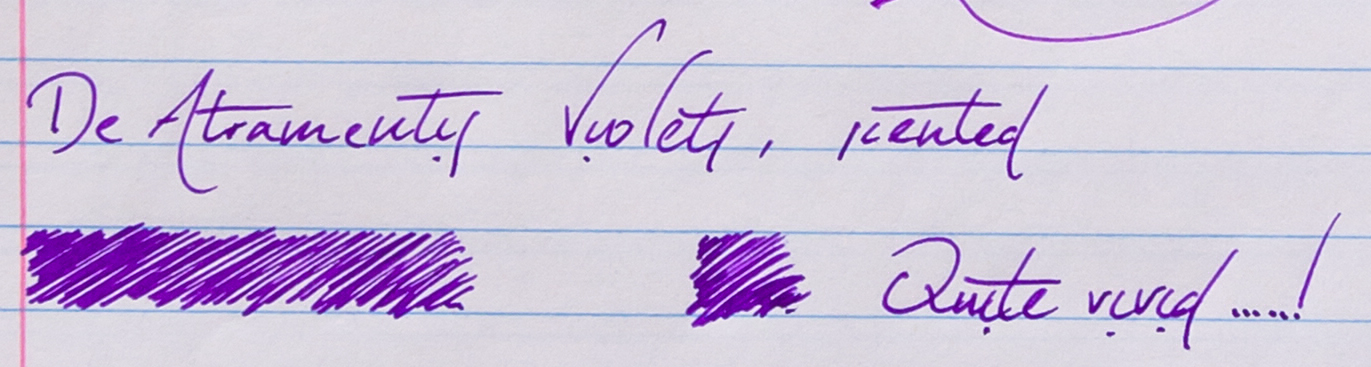 De Atramentis Violets, scented
Quite vivid .....!